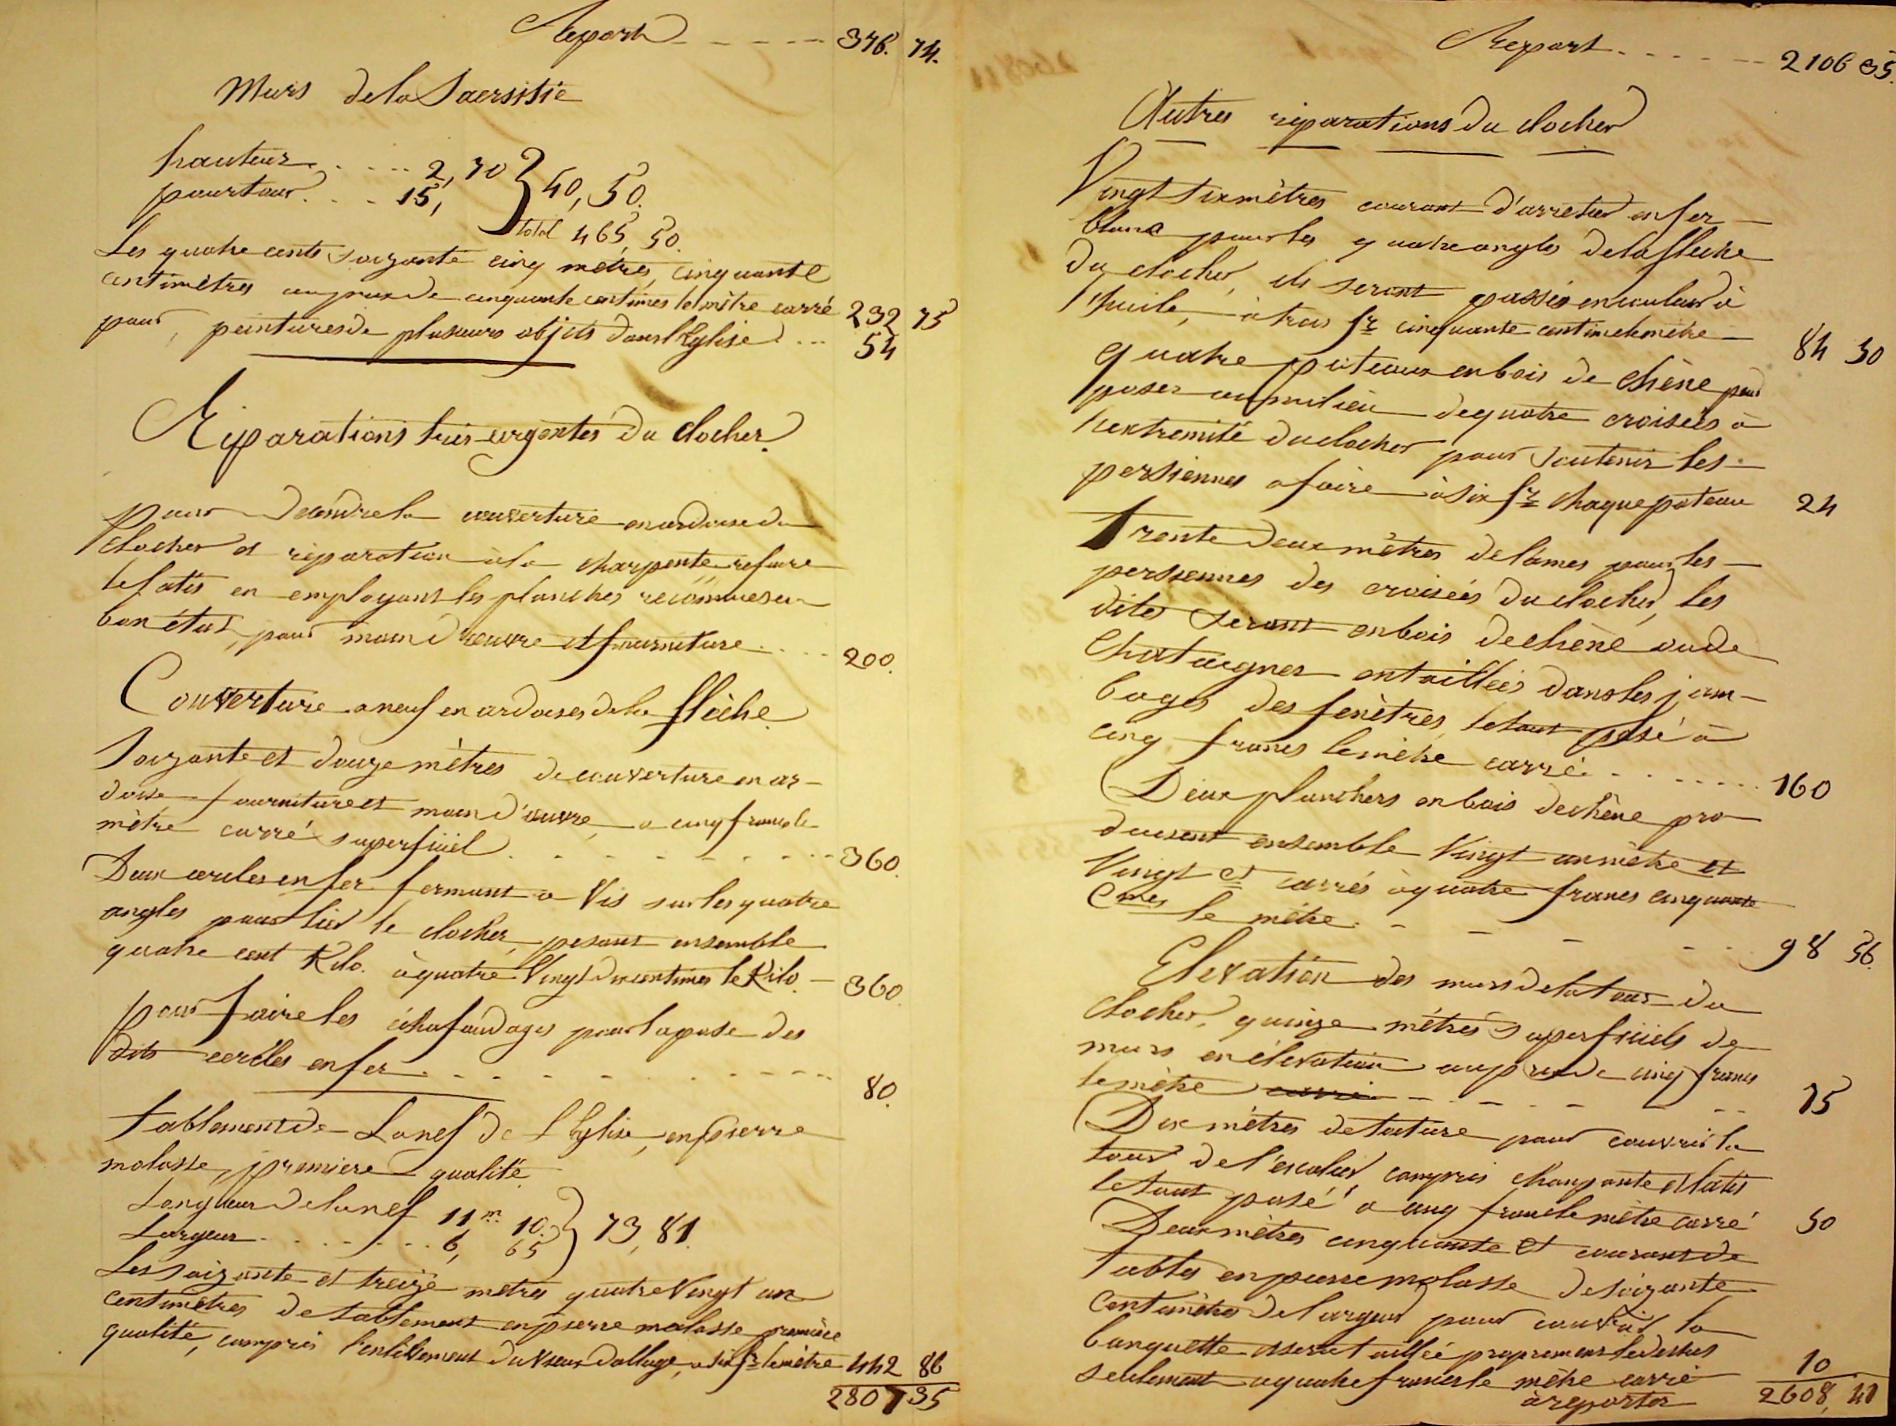 Report - - - - - 376. 74.
Murs de la Sacristie
hauteur. . . . . 2, 70 } 40, 50.
pourtour. . . . 15,
total 465, 50.
Les quatre cents soixante cinq metres, cinquante
centimètres au prix de cinquante centimes le mètre carré 232 75
pour peintures de plusieurs objets dans l'Eglise . . . 54
Réparations très-urgentes du clocher.
pour descendre la couverture en ardoise du
clocher et réparation à la charpente refaire
le latis en employant les planches reconnues en
bon état, pour main d'œuvre et fourniture . . . . 200.
Couverture a neuf en ardoises de la flèche
Soixante et douze mètres de couverture en ar-
doise fourniture et main d'œuvre, a cinq francs le
mètre carré superficiel . - - - - - - - - 360.
Deux cercles en fer fermant a Vis sur les quatre
angles pour lier le clocher, pesant ensemble
quatre cent Kilo. à quatre Vingt dix centimes le Kilo. - 360.
pour faire les échafaudages pour la pose des
dits cercles en fer. - - - - - - - - - 80.
tablement de La nef de l'Eglise, en pierre
molasse, premiere qualité.
Longueur de la nef 11 m. 10. } 73, 81.
Largeur. . . . . . . . 6, 65
Les soixante et treize metres quatre Vingt un
centimètres de tablement en pierre molasse première
qualité, compris l'enlèvement du vieux dallage, a six fr. le mètre 442 86
2807 35
Report. - - - - - 2106 35.
Autres réparations du clocher
Vingt six mètres courant d'arretier en fer -
blanc pour les quatre angles de la fleche
du clocher, ils seront passés en couleur à
l'huile, à trois fr. cinquante centimes le mètre - 84 50
quatre poteaux en bois de chêne pour
poser au milieu de quatre croisées à
l'extremité du clocher pour soutenir les -
persiennes a faire à six fr. chaque poteau 24
trente deux mètres de lames pour les -
persiennes des croisées du clocher, les
dites seront en bois de chêne ou de
Chataigner entaillées dans les jam-
bages des fenètres, le tout posé à
cinq francs le mètre carré. . . . . . . . 160
Deux planchers en bois de chêne pro-
duisant ensemble Vingt un mètre et
Vingt ct carrés à quatre francs cinquante
Cmes le mètre. - - - - - 98 56.
Elevation des murs de la tour du
clocher, quinze mètres superficiels de
murs en élévation au prix de cinq francs
le mètre carré - - - - - - 75
Dix mètres de toiture pour couvrir la
tour de l'escalier, compris charpente et latis
le tout posé a cinq francs le mètre carré 50
Deux mètres cinquante ct courant de
tables en pierre molasse de soixante
centimètres de largeur pour couvrir la
banquette et seront taillée proprement le dessus
seulement a quatre francs le mètre carré 10
à reporter 2608, 41